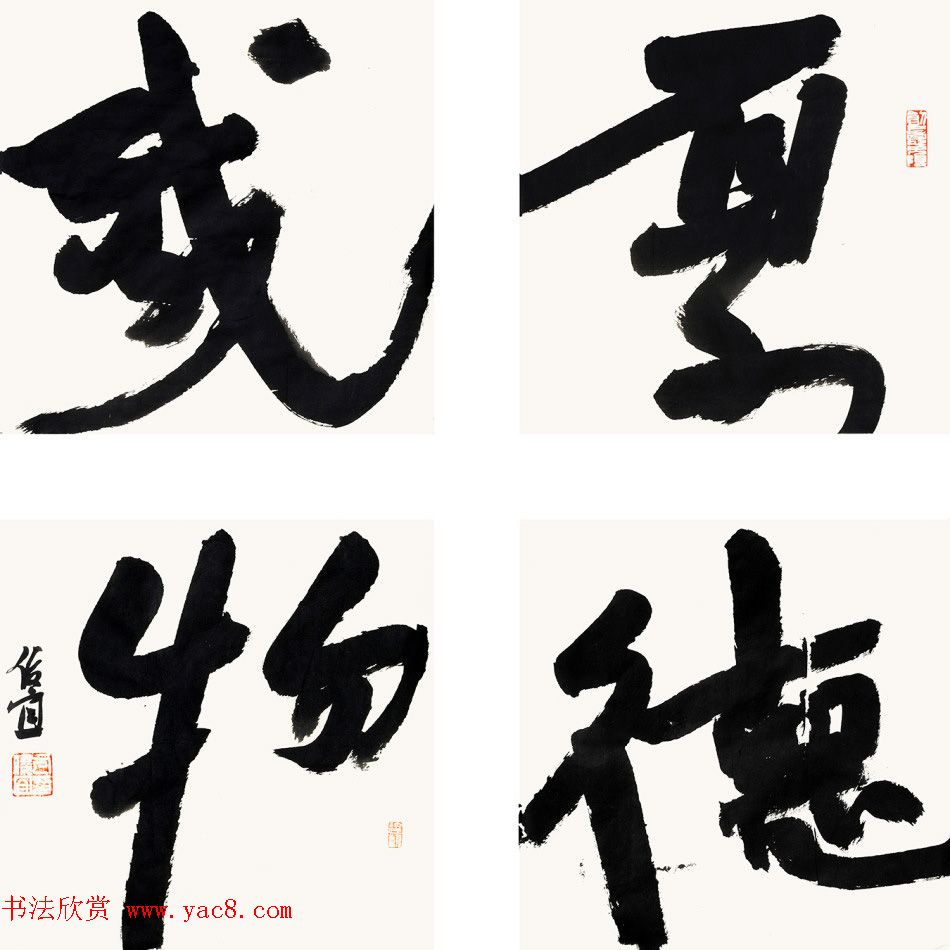 厚德
載物
书法欣赏 www.yac8.com